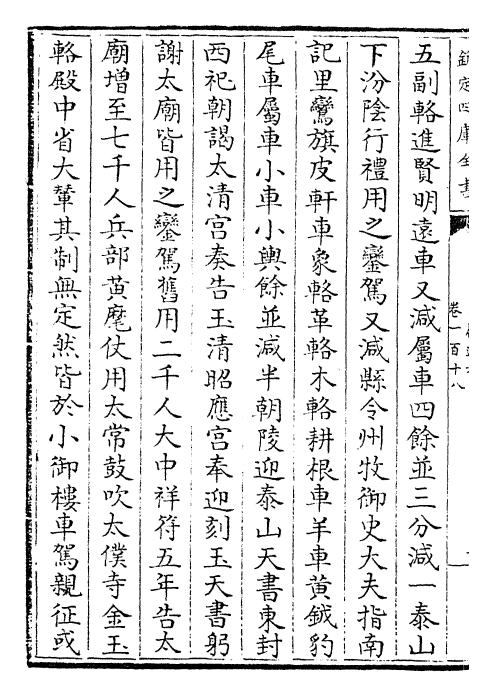 欽定四庫全書
卷一百十八
五副輅進賢明遠車又減屬車四餘並三分減一泰山
下汾陰行禮用之鑾駕又減縣令州牧御史大夫指南
記里鸞旗皮軒車象輅革輅木輅耕根車羊車黃鉞豹
尾車屬車小車小輿餘並減半朝陵迎泰山天書東封
西祀朝謁太清宮奏告玉清昭應宮奉迎刻玉天書躬
謝太廟皆用之鑾駕舊用二千人大中祥符五年告太
廟增至七千人兵部黃麾仗用太常鼓吹太僕寺金玉
輅殿中省大輦其制無定然皆於小御樓車駕親征或